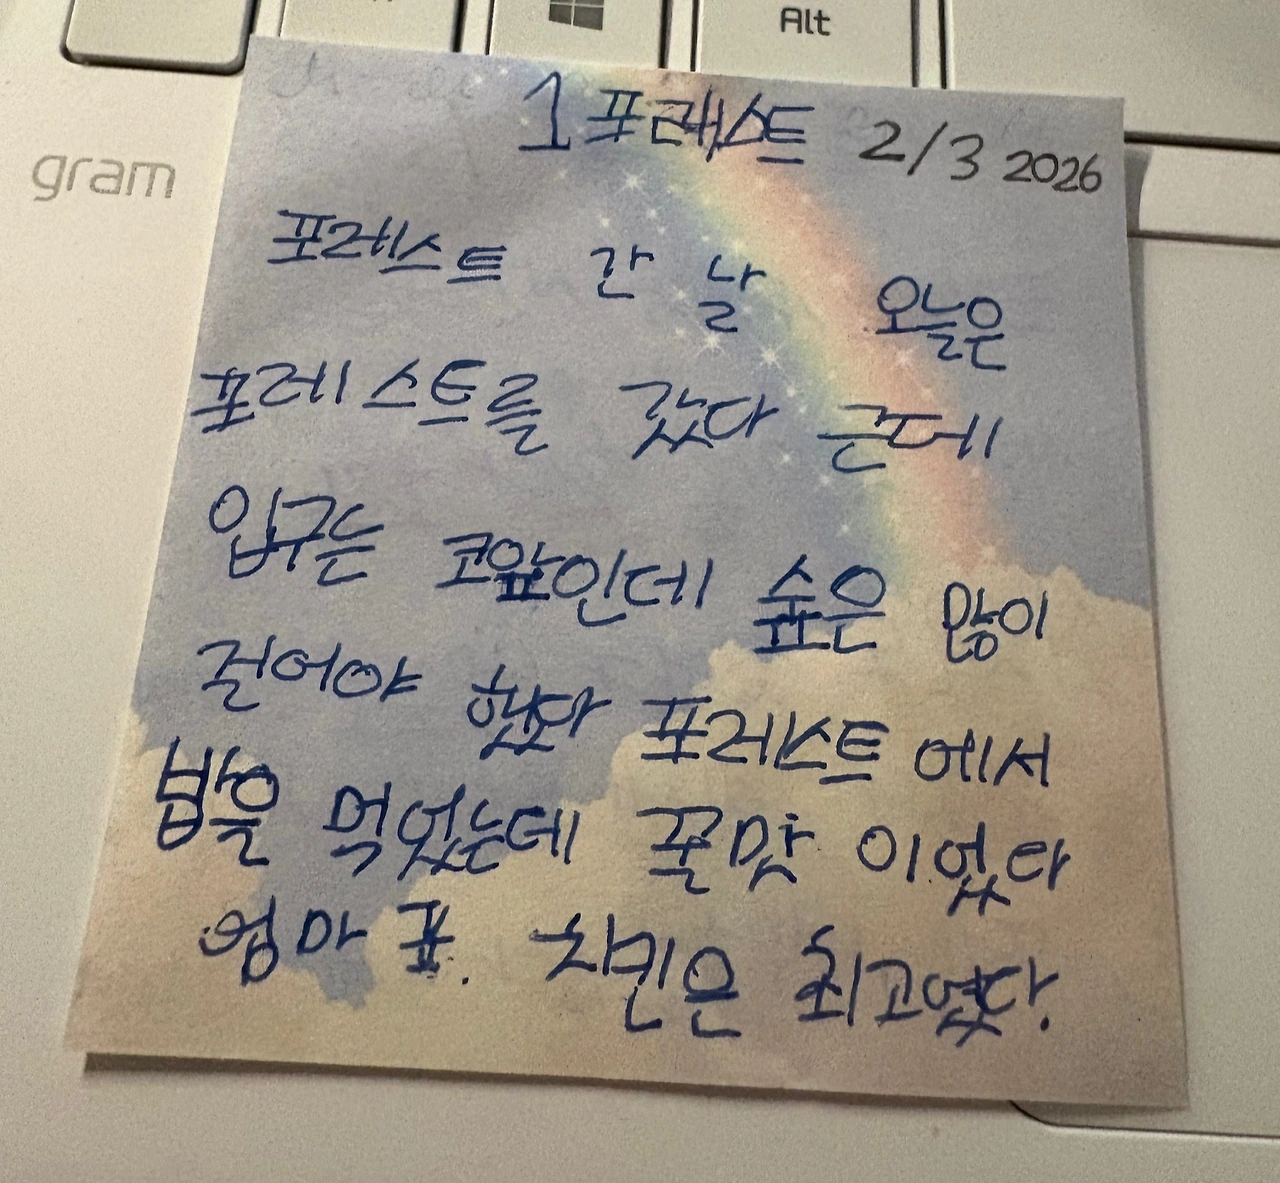 Alt
gram
1 포래스트 2/3 2026
포레스트 간 날 오늘은
포레스트를 갔다 근데
입구는 코앞인데 숲은 많이
걸어야 했다 포레스트에서
밥을 먹었는데 꿀맛 이었다
엄마 표. 치킨은 최고였다.